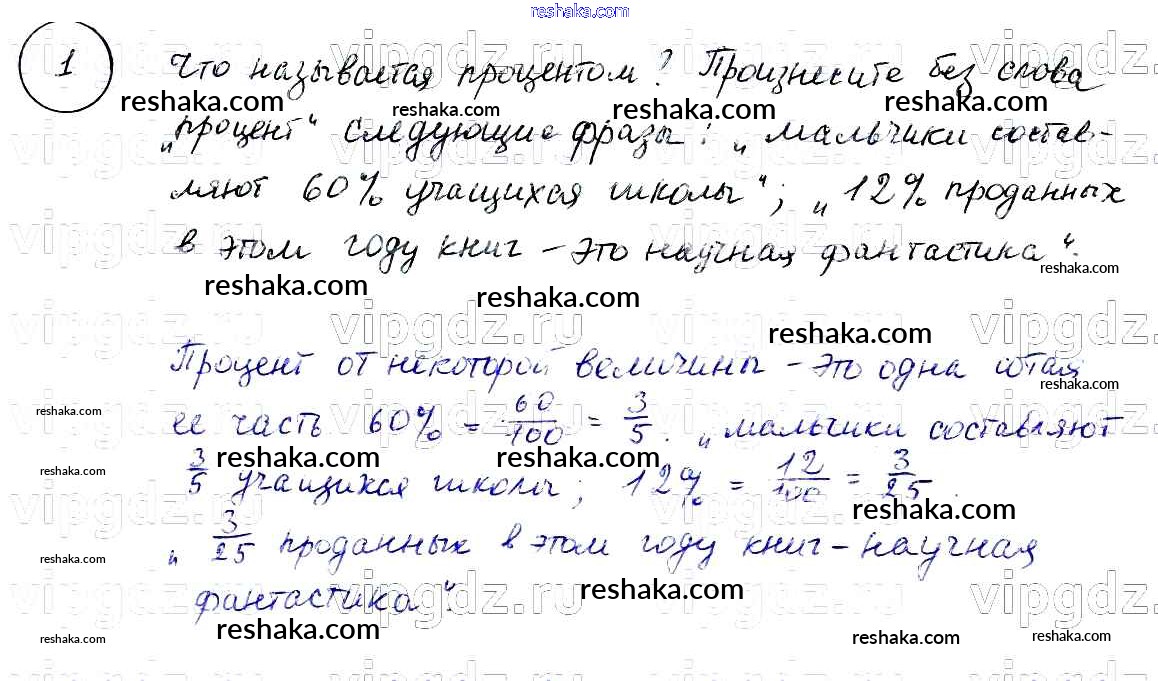 reshaka.com
1 Что называется процентом? Произнесите без слова
reshaka.com reshaka.com reshaka.com
„процент“ следующие фразы: „мальчики состав-
ляют 60% учащихся школы“; „12% проданных
в этом году книг – это научная фантастика“.
reshaka.com
reshaka.com reshaka.com
vipgdz.ru vipgdz.ru vipgdz.ru
reshaka.com
Процент от некоторой величины – это одна сотая
reshaka.com
ее часть 60% = 60/100 = 3/5. „мальчики составляют
reshaka.com reshaka.com reshaka.com
3/5 учащихся школы; 12% = 12/100 = 3/25.
reshaka.com
„3/25 проданных в этом году книг – научная
reshaka.com
reshaka.com
фантастика“.
reshaka.com reshaka.com reshaka.com reshaka.com